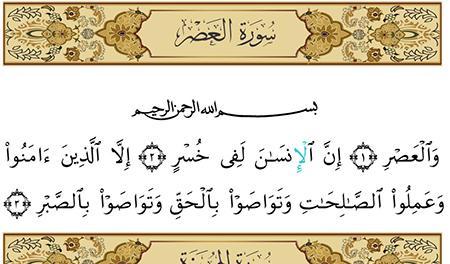 سُورَةُ العَصْرِ
بسم الله الرحمن الرحيم
وَٱلْعَصْرِ ﴿١﴾ إِنَّ ٱلْإِنسَـٰنَ لَفِى خُسْرٍ ﴿٢﴾ إِلَّا ٱلَّذِينَ ءَامَنُوا۟
وَعَمِلُوا۟ ٱلصَّـٰلِحَـٰتِ وَتَوَاصَوْا۟ بِٱلْحَقِّ وَتَوَاصَوْا۟ بِٱلصَّبْرِ ﴿٣﴾
سُورَةُ الهُمَزَةِ